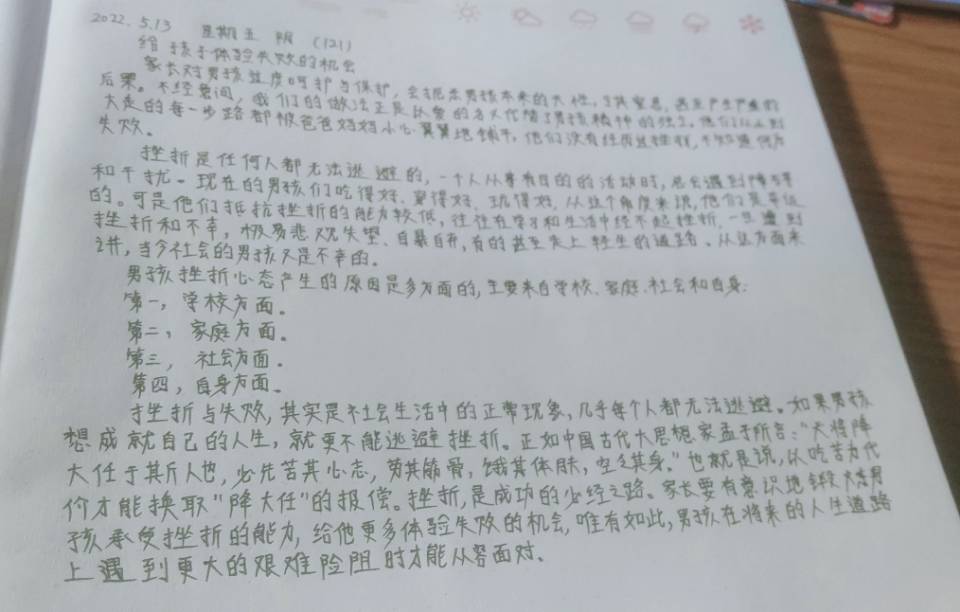 2022.5.13 星期五 阴 (121)
给孩子体验失败的机会
家长对男孩过度呵护与保护，会扼杀男孩本来的天性，甚至产生严重的
后果。不经意间，我们的做法正是以爱的名义代替了男孩精神的独立。他们从小到
大走的每一步路都被爸爸妈妈小心翼翼地铺平，他们没有经历过挫折，不知道何为
失败。
挫折是任何人都无法逃避的，一个人从事有目的的活动时，总会遇到障碍
和干扰。现在的男孩们吃得好、穿得好、玩得好，从这个角度来说，他们是幸运
的。可是他们抵抗挫折的能力较低，往往在学习和生活中经不起挫折，一旦遭到
挫折和不幸，极易悲观失望、自暴自弃，有的甚至走上轻生的道路。从这方面来
讲，当今社会的男孩又是不幸的。
男孩挫折心态产生的原因是多方面的，主要来自学校、家庭、社会和自身。
第一，学校方面。
第二，家庭方面。
第三，社会方面。
第四，自身方面。
挫折与失败，其实是社会生活中的正常现象，几乎每个人都无法逃避。如果男孩
想成就自己的人生，就更不能逃避挫折。正如中国古代大思想家孟子所言："天将降
大任于其斤人也，必先苦其心志，劳其筋骨，饿其体肤，空乏其身。"也就是说，以吃苦为代
价才能换取"降大任"的报偿。挫折，是成功的必经之路。家长要有意识地锻炼男
孩承受挫折的能力，给他更多体验失败的机会，唯有如此，男孩在将来的人生道路
上遇到更大的艰难险阻时才能从容面对。